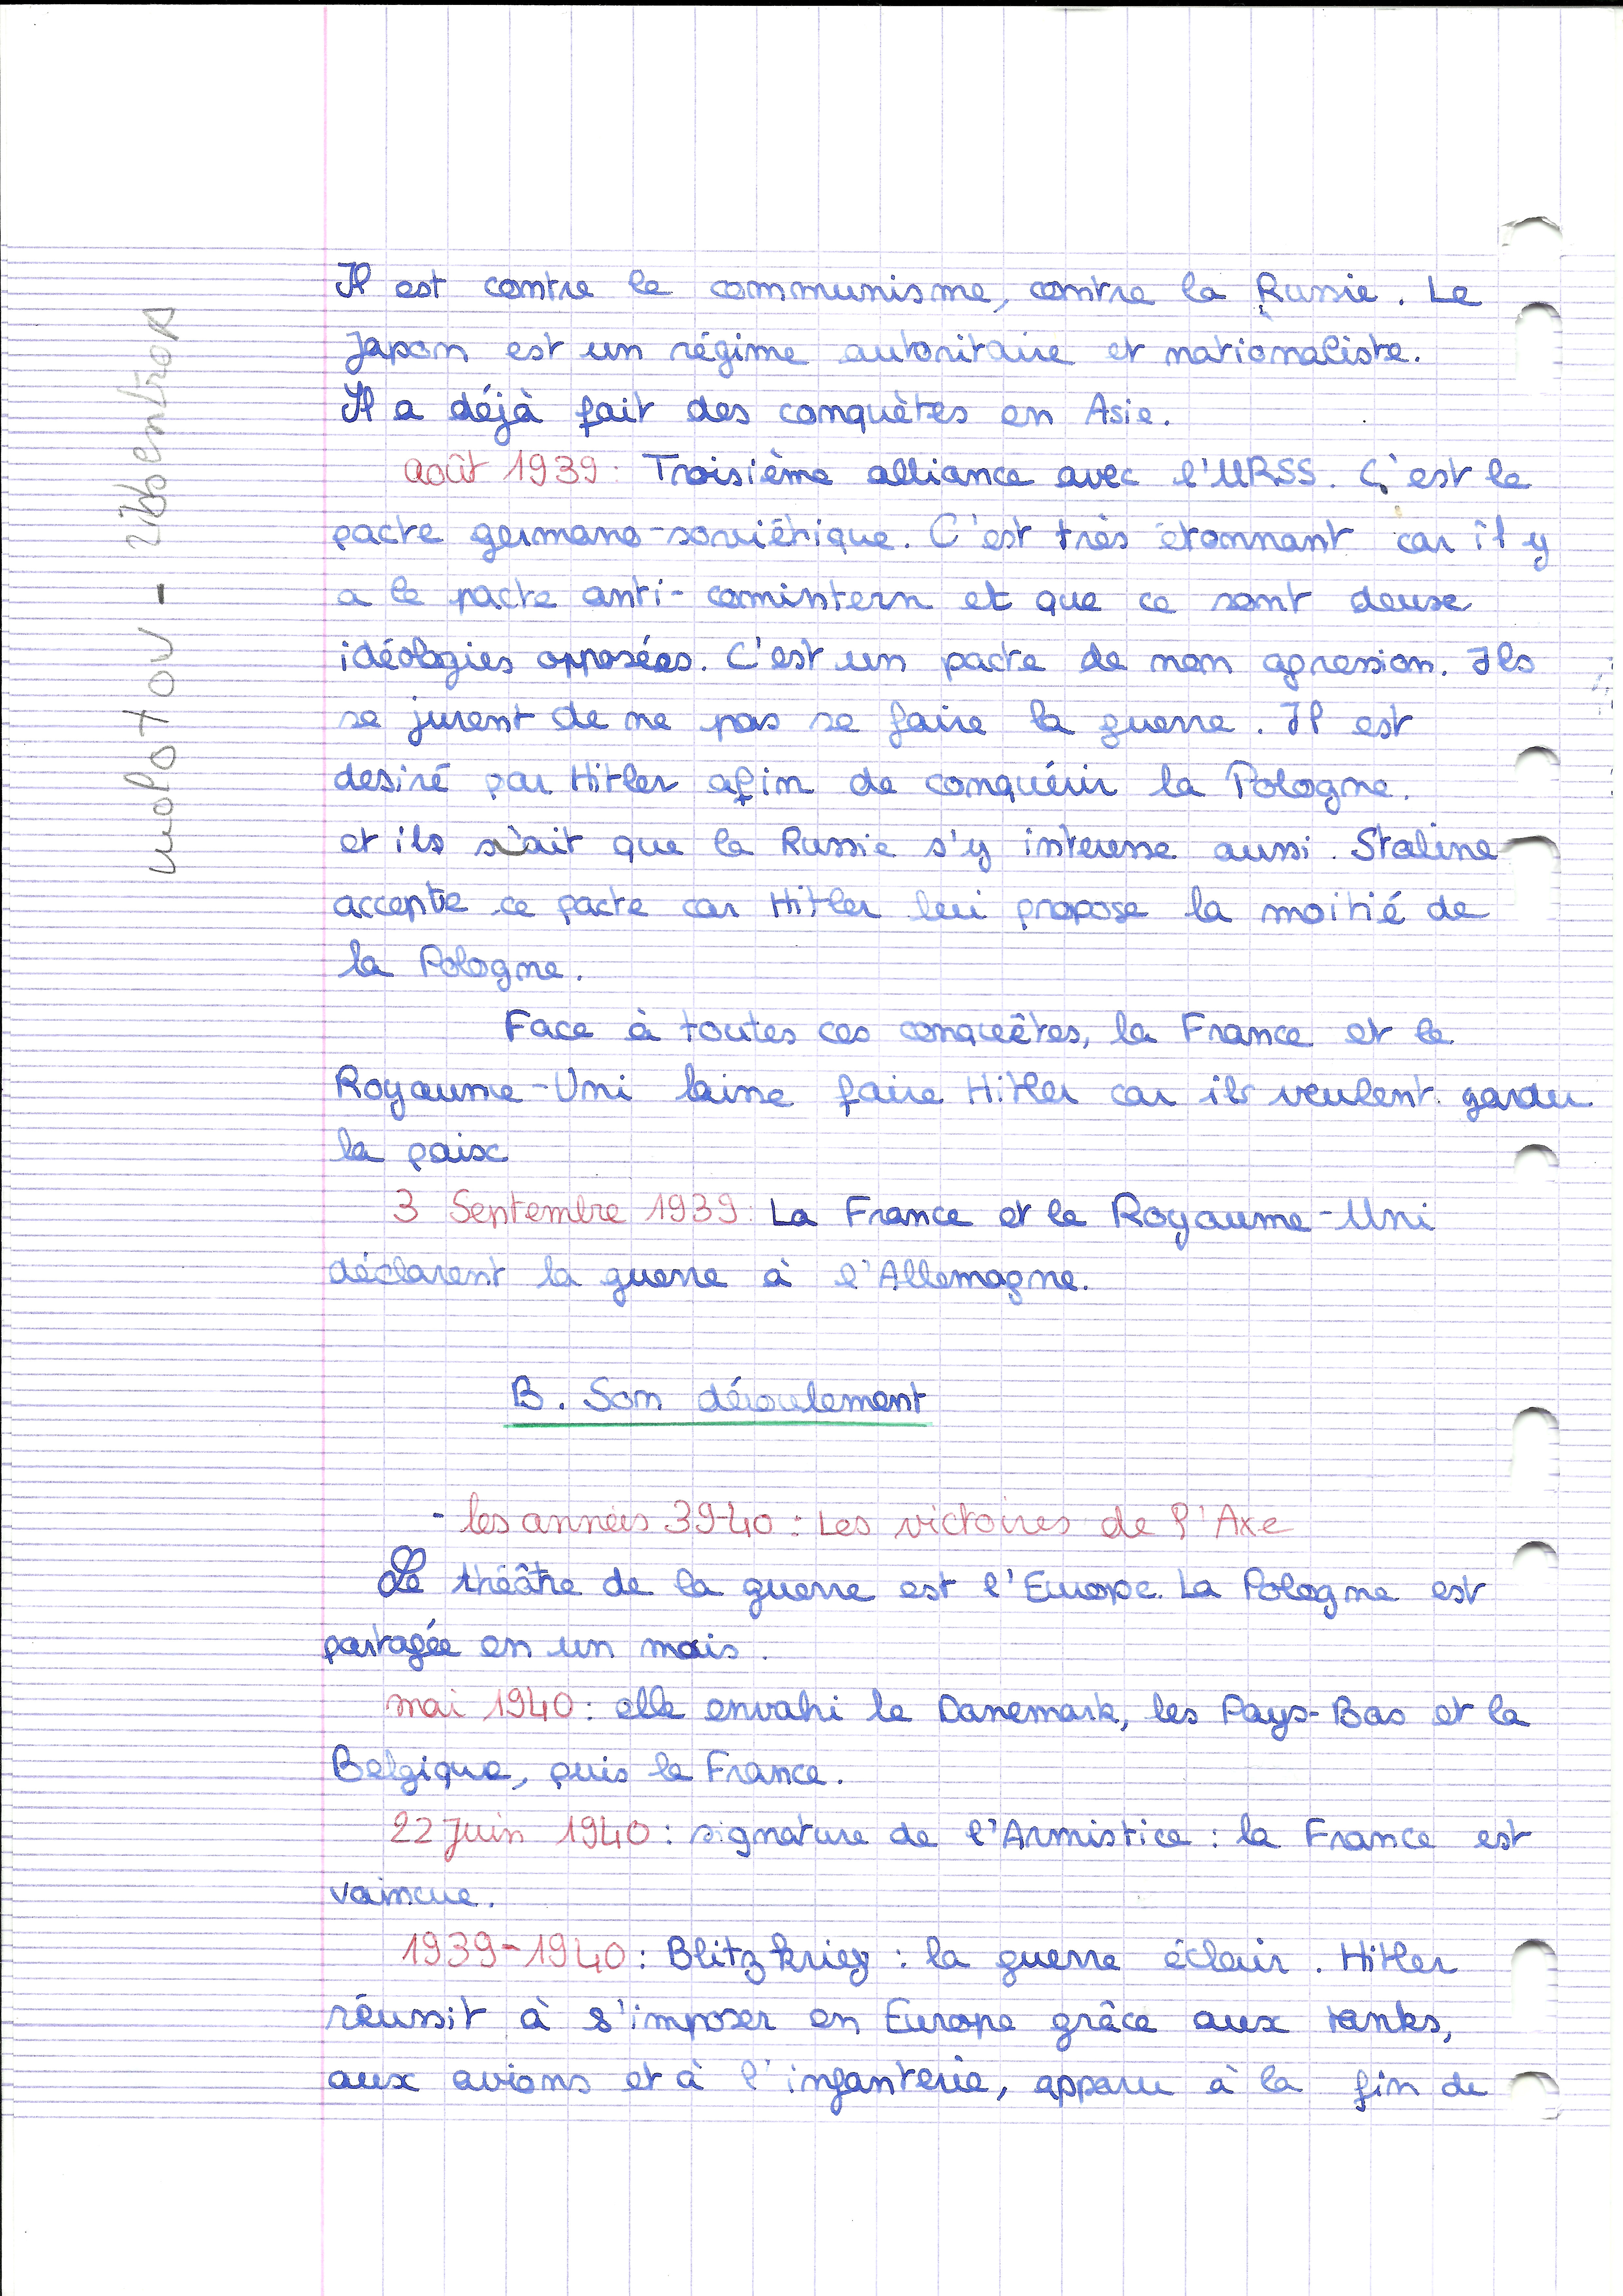 Il est contre le communisme, contre la Russie. Le
Japon est un régime autoritaire et nationaliste.
Il a déjà fait des conquètes en Asie.
août 1939 : Troisième alliance avec l'URSS. C'est le
pacte germano-soviétique. C'est très étonnant car il y
a le pacte anti-comintern et que ce sont deux
idéologies opposées. C'est un pacte de non agression. Ils
se jurent de ne pas se faire la guerre. Il est
desiré par Hitler afin de conquérir la Pologne.
et ils s'ait que la Russie s'y interesse aussi. Staline
accepte ce pacte car Hitler lui propose la moitié de
la Pologne.
Face à toutes ces conquêtes, la France et le
Royaume-Uni laisse faire Hitler car ils veulent garder
la paix
3 Septembre 1939 : La France et le Royaume-Uni
déclarent la guerre à l'Allemagne.
B. Son déroulement
- les années 39-40 : Les victoires de l'Axe
Le théâtre de la guerre est l'Europe. La Pologne est
partagée en un mois.
mai 1940 : elle envahi le Danemark, les Pays-Bas et la
Belgique, puis la France.
22 Juin 1940 : signature de l'Armistice : la France est
vaincue.
1939-1940 : Blitzkrieg : la guerre éclair. Hitler
réussit à s'imposer en Europe grâce aux tanks,
aux avions et à l'infanterie, apparu à la fin de
molotov - ribbentrop